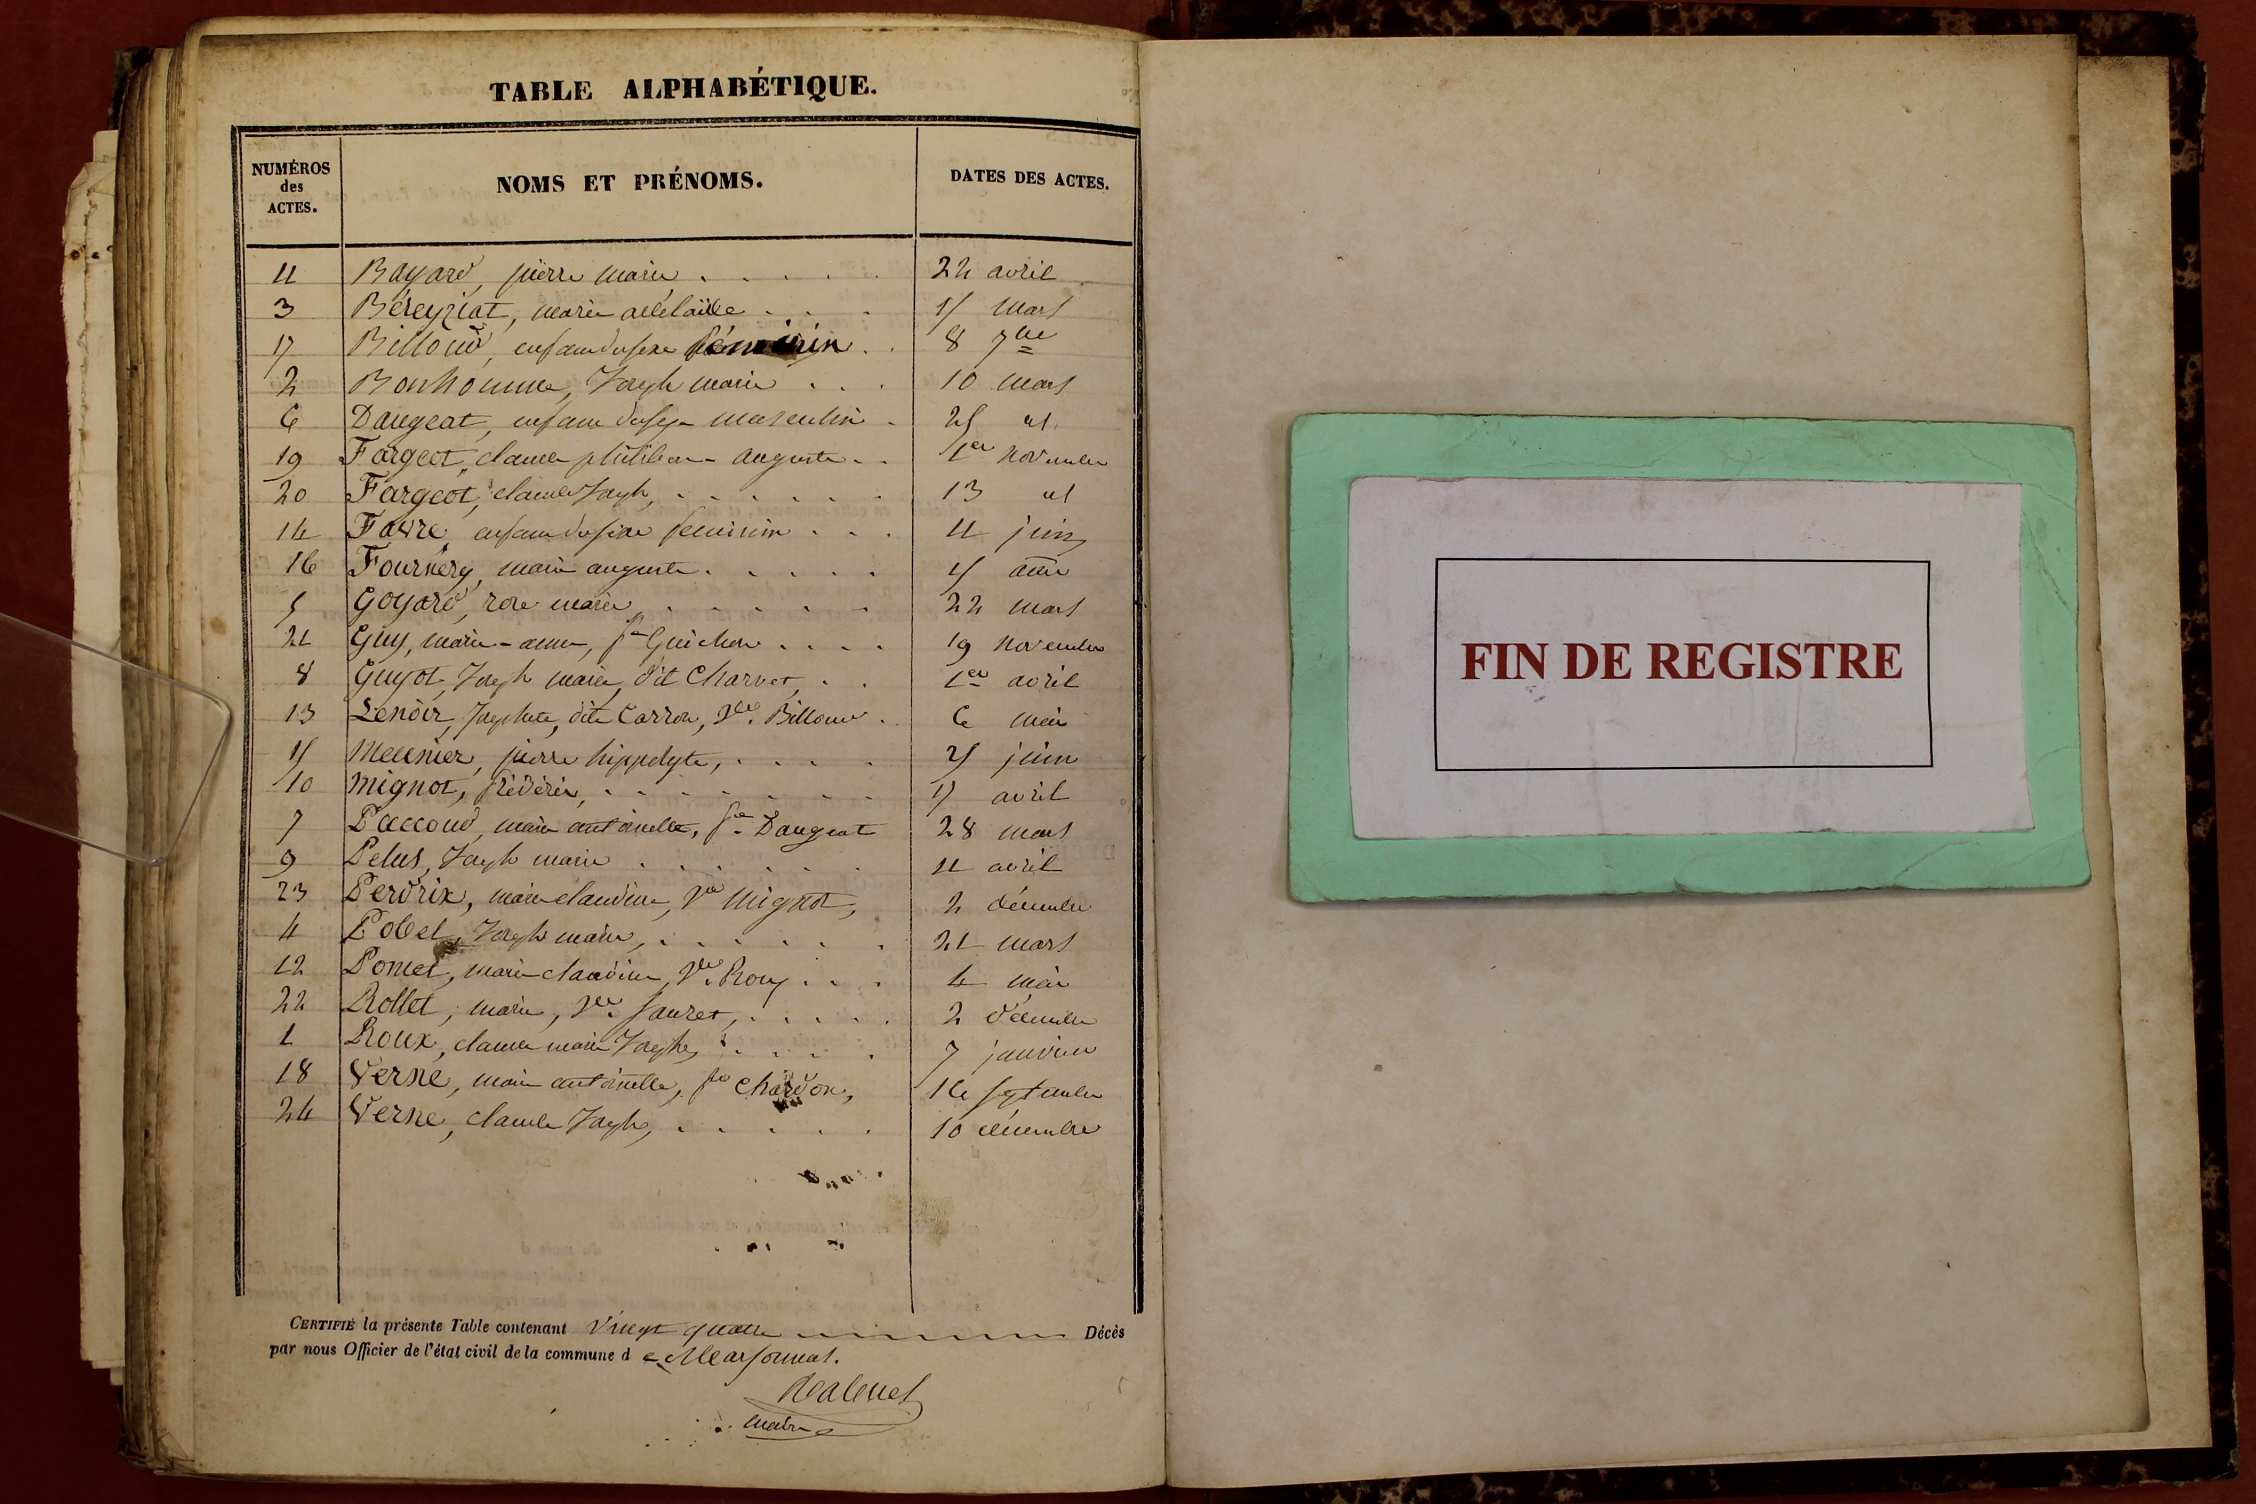 TABLE ALPHABÉTIQUE.
NUMÉROS
des
ACTES.
NOMS ET PRÉNOMS.
DATES DES ACTES.
11 Bayard, pierre marie 22 avril
3 Béreyziat, marie adélaïde 15 mars
17 Billoud, enfant du sexe féminin 8 7bre
2 Bonhomme, Joseph marie 10 mars
6 Daugeat, enfant du sexe masculin 25 id.
19 Fargeot, claude philibert auguste 1er novembre
20 Fargeot, claude Joseph, 13 id
14 Favre, enfant du sexe féminin 11 juin
16 Fournery, marie auguste 5 août
5 Goyard, rose marie 22 mars
21 Guy, marie-anne, fe Guichon 19 novembre
8 Guyot, Joseph marie, dit Charvet, 1er avril
13 Lenoir, Josephte, dite Carron, Vve Billoud 6 mai
15 Meunier, pierre hippolyte, 25 juin
10 Mignot, frédéric, 15 avril
7 Paccoud, marie antoinette, fe Daugeat 28 mars
9 Pelus, Joseph marie 11 avril
23 Perdrix, marie claudine, Ve Mignot, 2 décembre
4 Pobel, Joseph marie, 21 mars
12 Poncet, marie claudine, Vve Roux 4 mai
22 Rollet, marie, Vve Sauret, 2 décembre
1 Roux, claude marie Joseph, 7 janvier
18 Verne, marie antoinette, fe Chardon, 16 septembre
24 Verne, claude Joseph, 10 décembre
CERTIFIÉ la présente Table contenant Vingt quatre Décès
par nous Officier de l'état civil de la commune d e Marsonnas.
maire
FIN DE REGISTRE